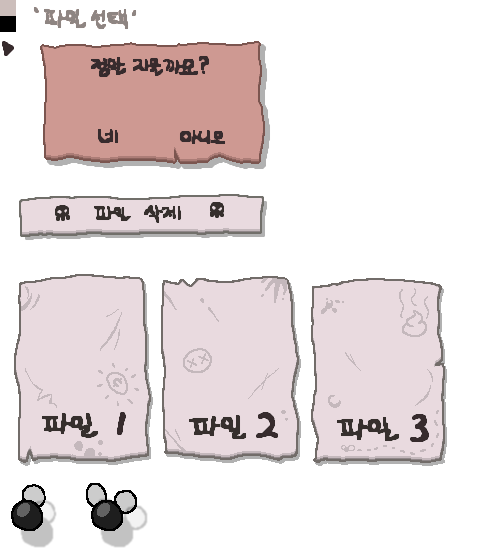 '파일 선택'
정말 지울까요?
네 아니오
파일 삭제
파일 1 파일 2 파일 3